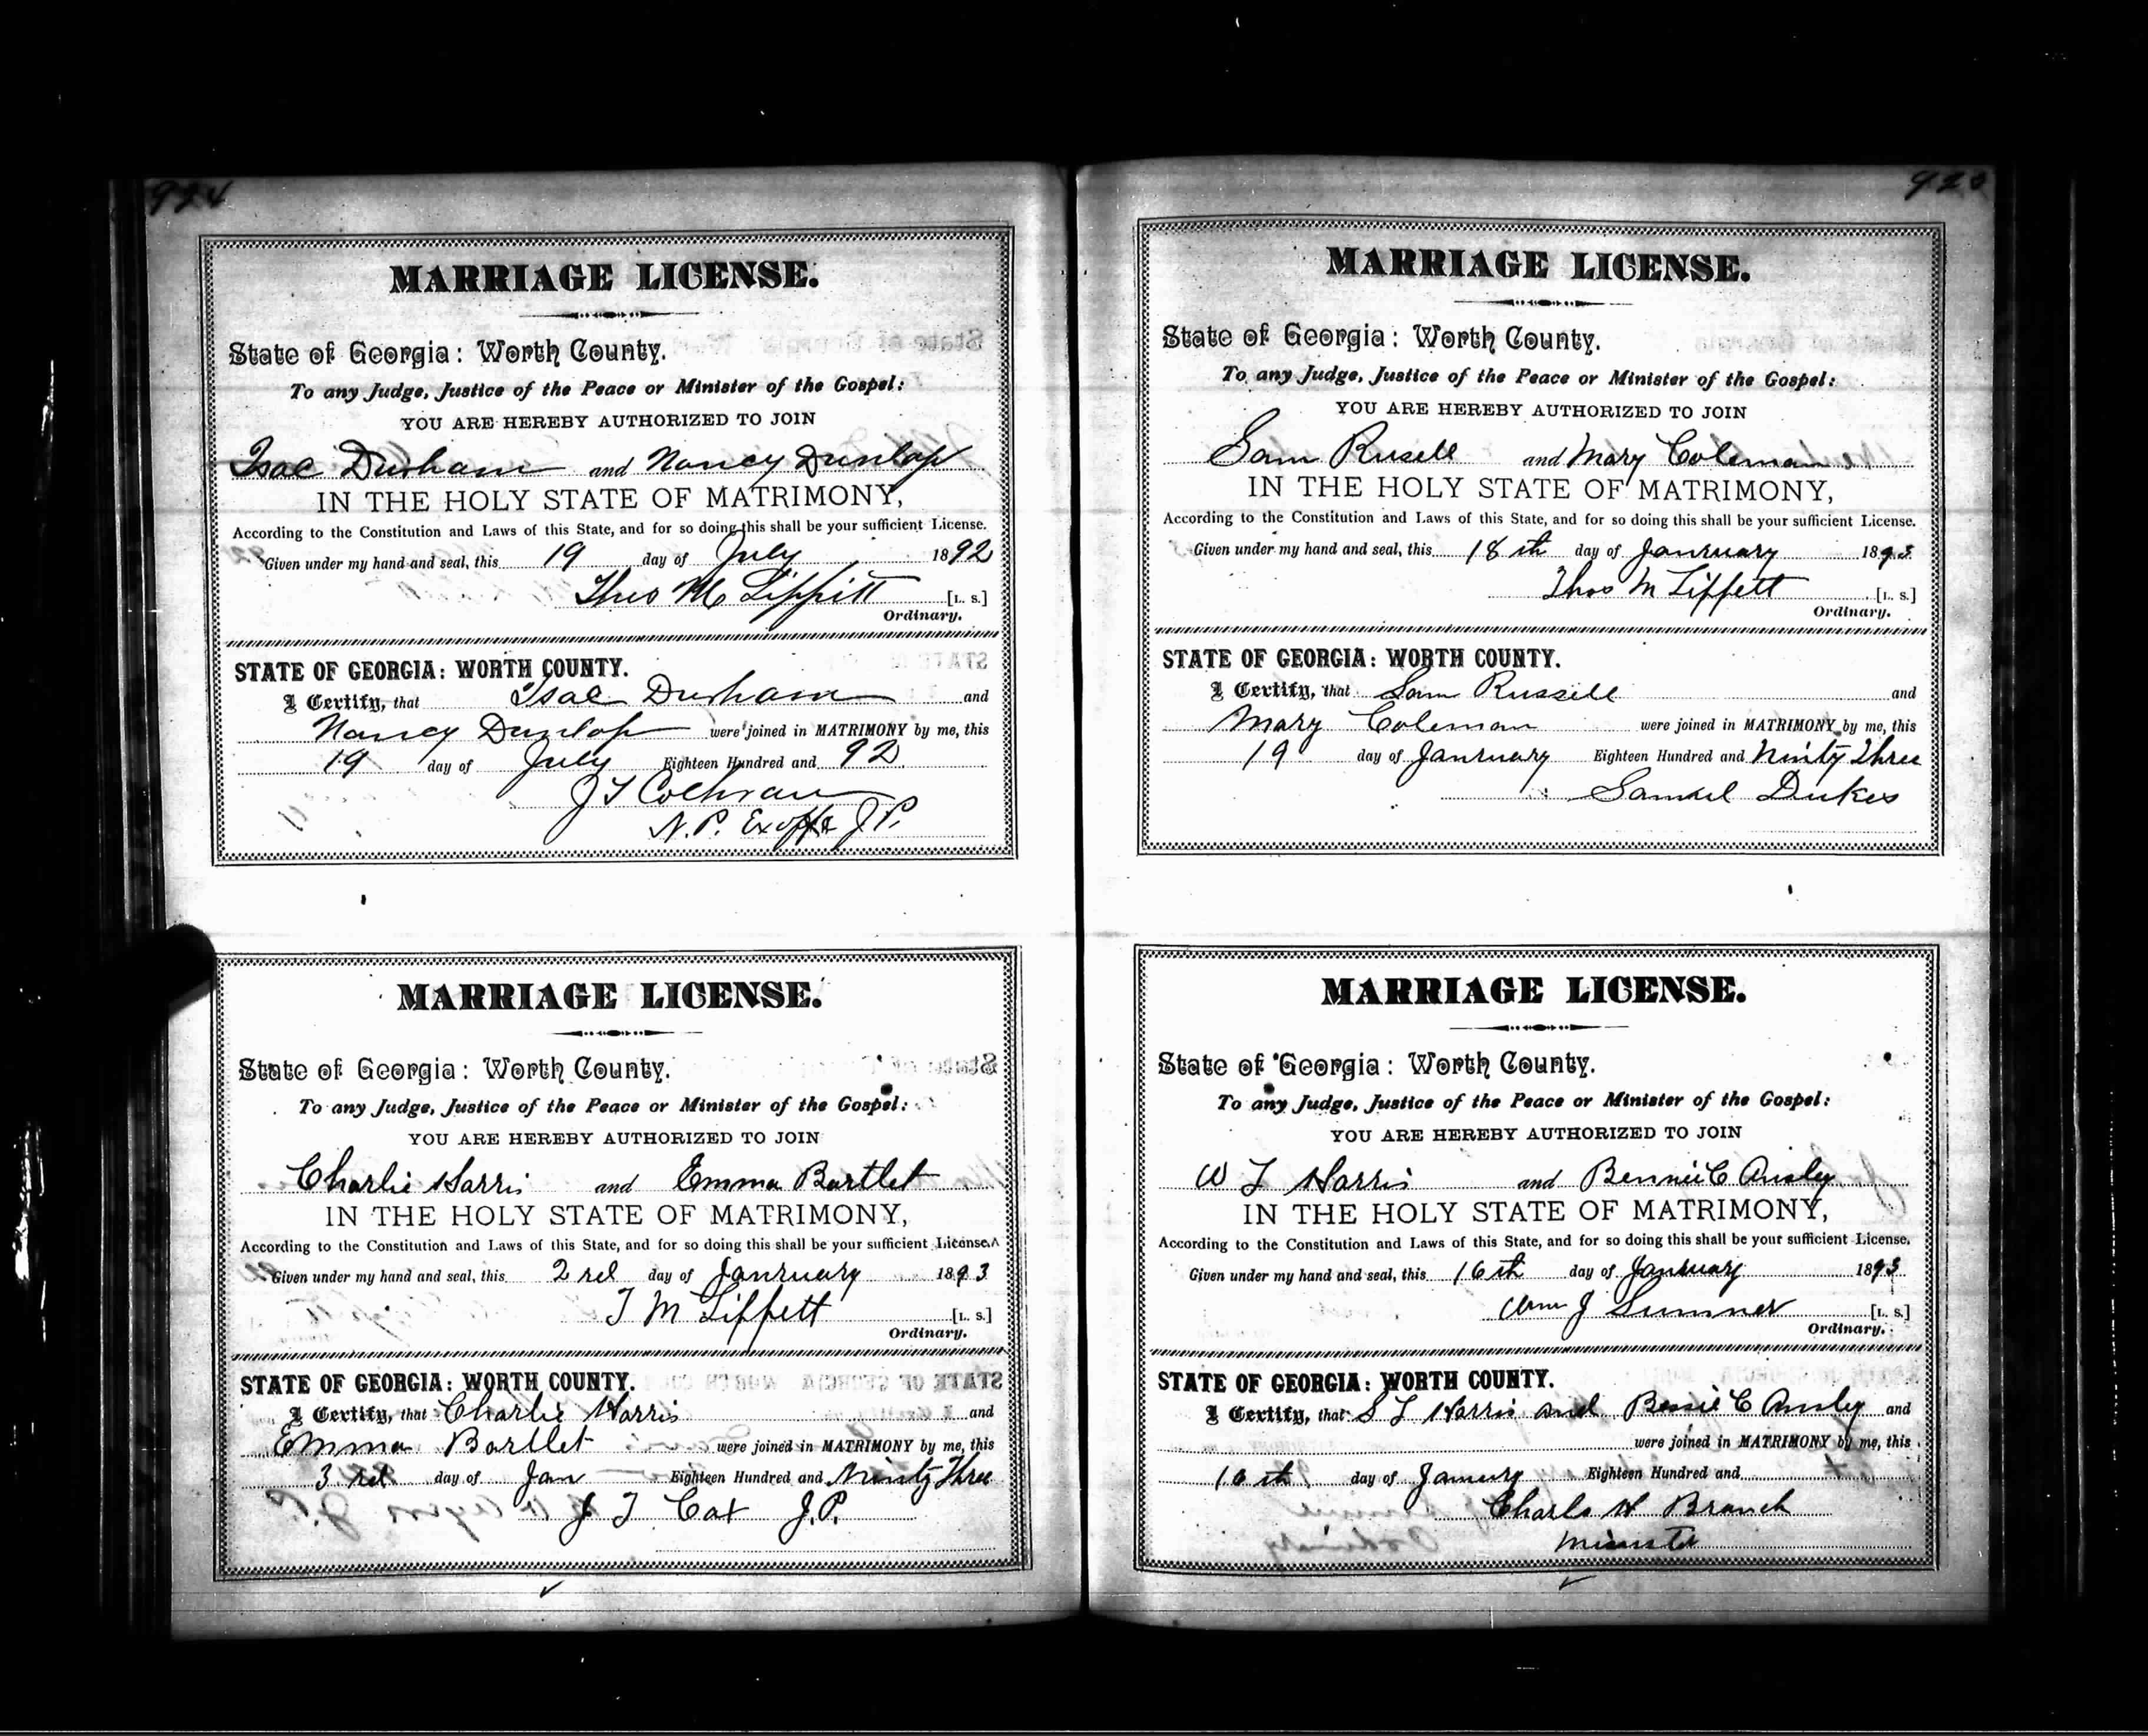 924
MARRIAGE LICENSE.
State of Georgia: Worth County.
To any Judge, Justice of the Peace or Minister of the Gospel:
YOU ARE HEREBY AUTHORIZED TO JOIN
Isac Durham and Nancy Dunlap
IN THE HOLY STATE OF MATRIMONY,
According to the Constitution and Laws of this State, and for so doing this shall be your sufficient License.
Given under my hand and seal, this 19 day of July 1892
Thos M Lippitt [L. S.]
Ordinary.
STATE OF GEORGIA: WORTH COUNTY.
I Certify, that Isac Durham and
Nancy Dunlap were joined in MATRIMONY by me, this
19 day of July Eighteen Hundred and 92
J T Cochran
N. P. Exoffo J P.
MARRIAGE LICENSE.
State of Georgia: Worth County.
To any Judge, Justice of the Peace or Minister of the Gospel:
YOU ARE HEREBY AUTHORIZED TO JOIN
Charlie Harris and Emma Bartlet
IN THE HOLY STATE OF MATRIMONY,
According to the Constitution and Laws of this State, and for so doing this shall be your sufficient License.
Given under my hand and seal, this 2 rd day of Januruary 1893
T M Lippett [L. S.]
Ordinary.
STATE OF GEORGIA: WORTH COUNTY.
I Certify, that Charlie Harris and
Emma Bartlet were joined in MATRIMONY by me, this
3 rd day of Jan Eighteen Hundred and Ninity Three
J T Cox J.P.
MARRIAGE LICENSE.
State of Georgia: Worth County.
To any Judge, Justice of the Peace or Minister of the Gospel:
YOU ARE HEREBY AUTHORIZED TO JOIN
Sam Rusell and Mary Coleman
IN THE HOLY STATE OF MATRIMONY,
According to the Constitution and Laws of this State, and for so doing this shall be your sufficient License.
Given under my hand and seal, this 18 th day of Januruary 1893
Thos M Lippett [L. S.]
Ordinary.
STATE OF GEORGIA: WORTH COUNTY.
I Certify, that Sam Russell and
Mary Coleman were joined in MATRIMONY by me, this
19 day of Januruary Eighteen Hundred and Ninity Three
Samuel Dukes
MARRIAGE LICENSE.
State of Georgia: Worth County.
To any Judge, Justice of the Peace or Minister of the Gospel:
YOU ARE HEREBY AUTHORIZED TO JOIN
W T Harris and Bennie C Ansley
IN THE HOLY STATE OF MATRIMONY,
According to the Constitution and Laws of this State, and for so doing this shall be your sufficient License.
Given under my hand and seal, this 16 th day of January 1893
Wm J Sumner [L. S.]
Ordinary.
STATE OF GEORGIA: WORTH COUNTY.
I Certify, that S T Harris and Bessie C Ansley and
were joined in MATRIMONY by me, this
16 th day of January Eighteen Hundred and
Charls H Branch
Minister